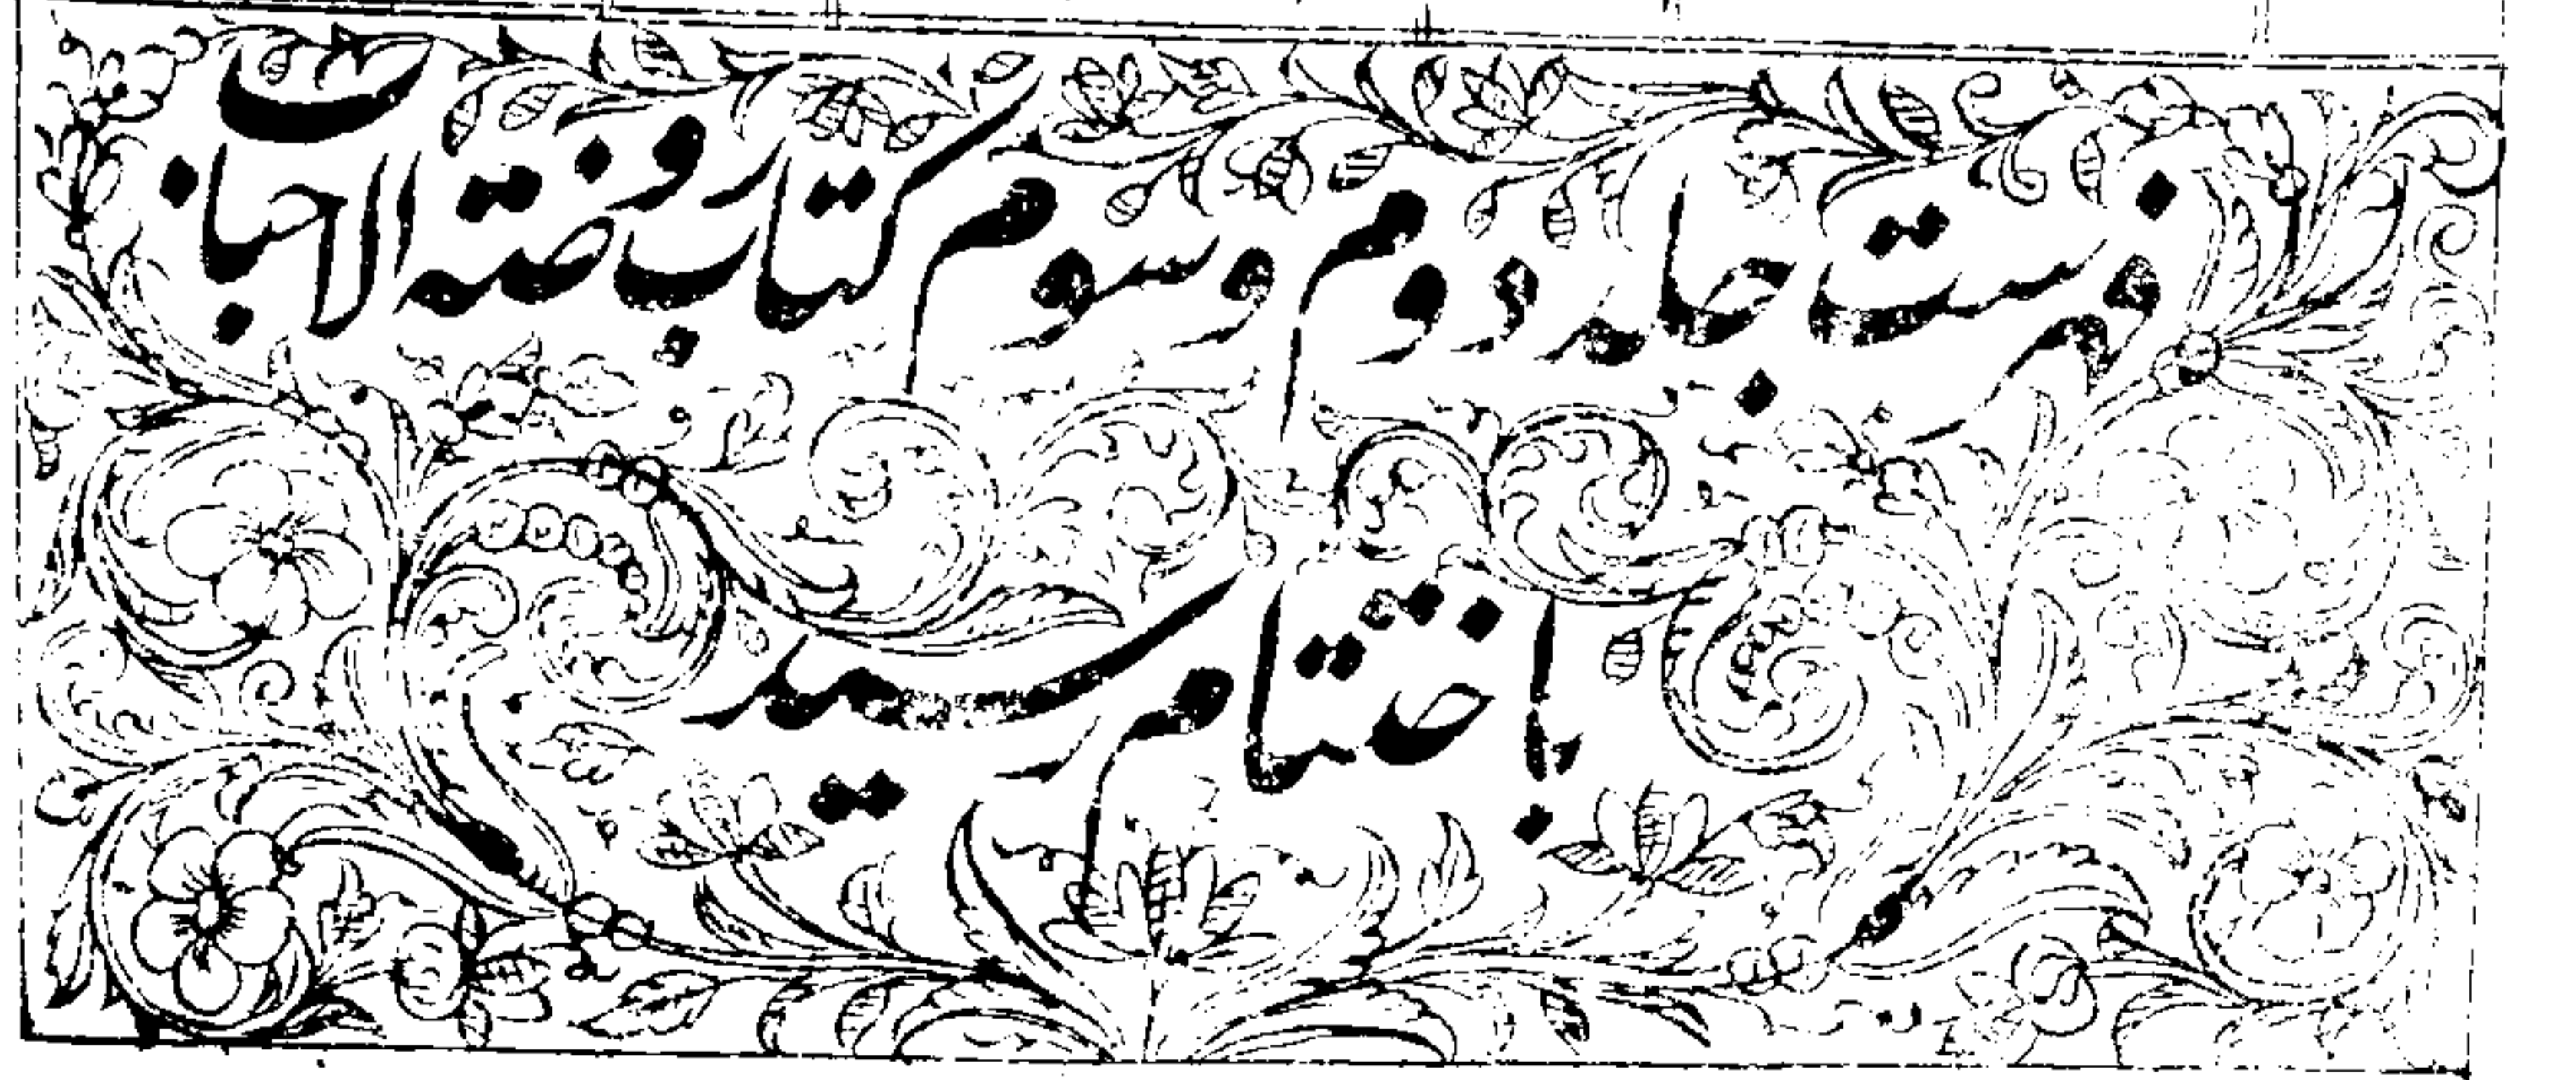 فهرست جلد دوم و سوم کتاب روضة الاحباب
باختتام رسید